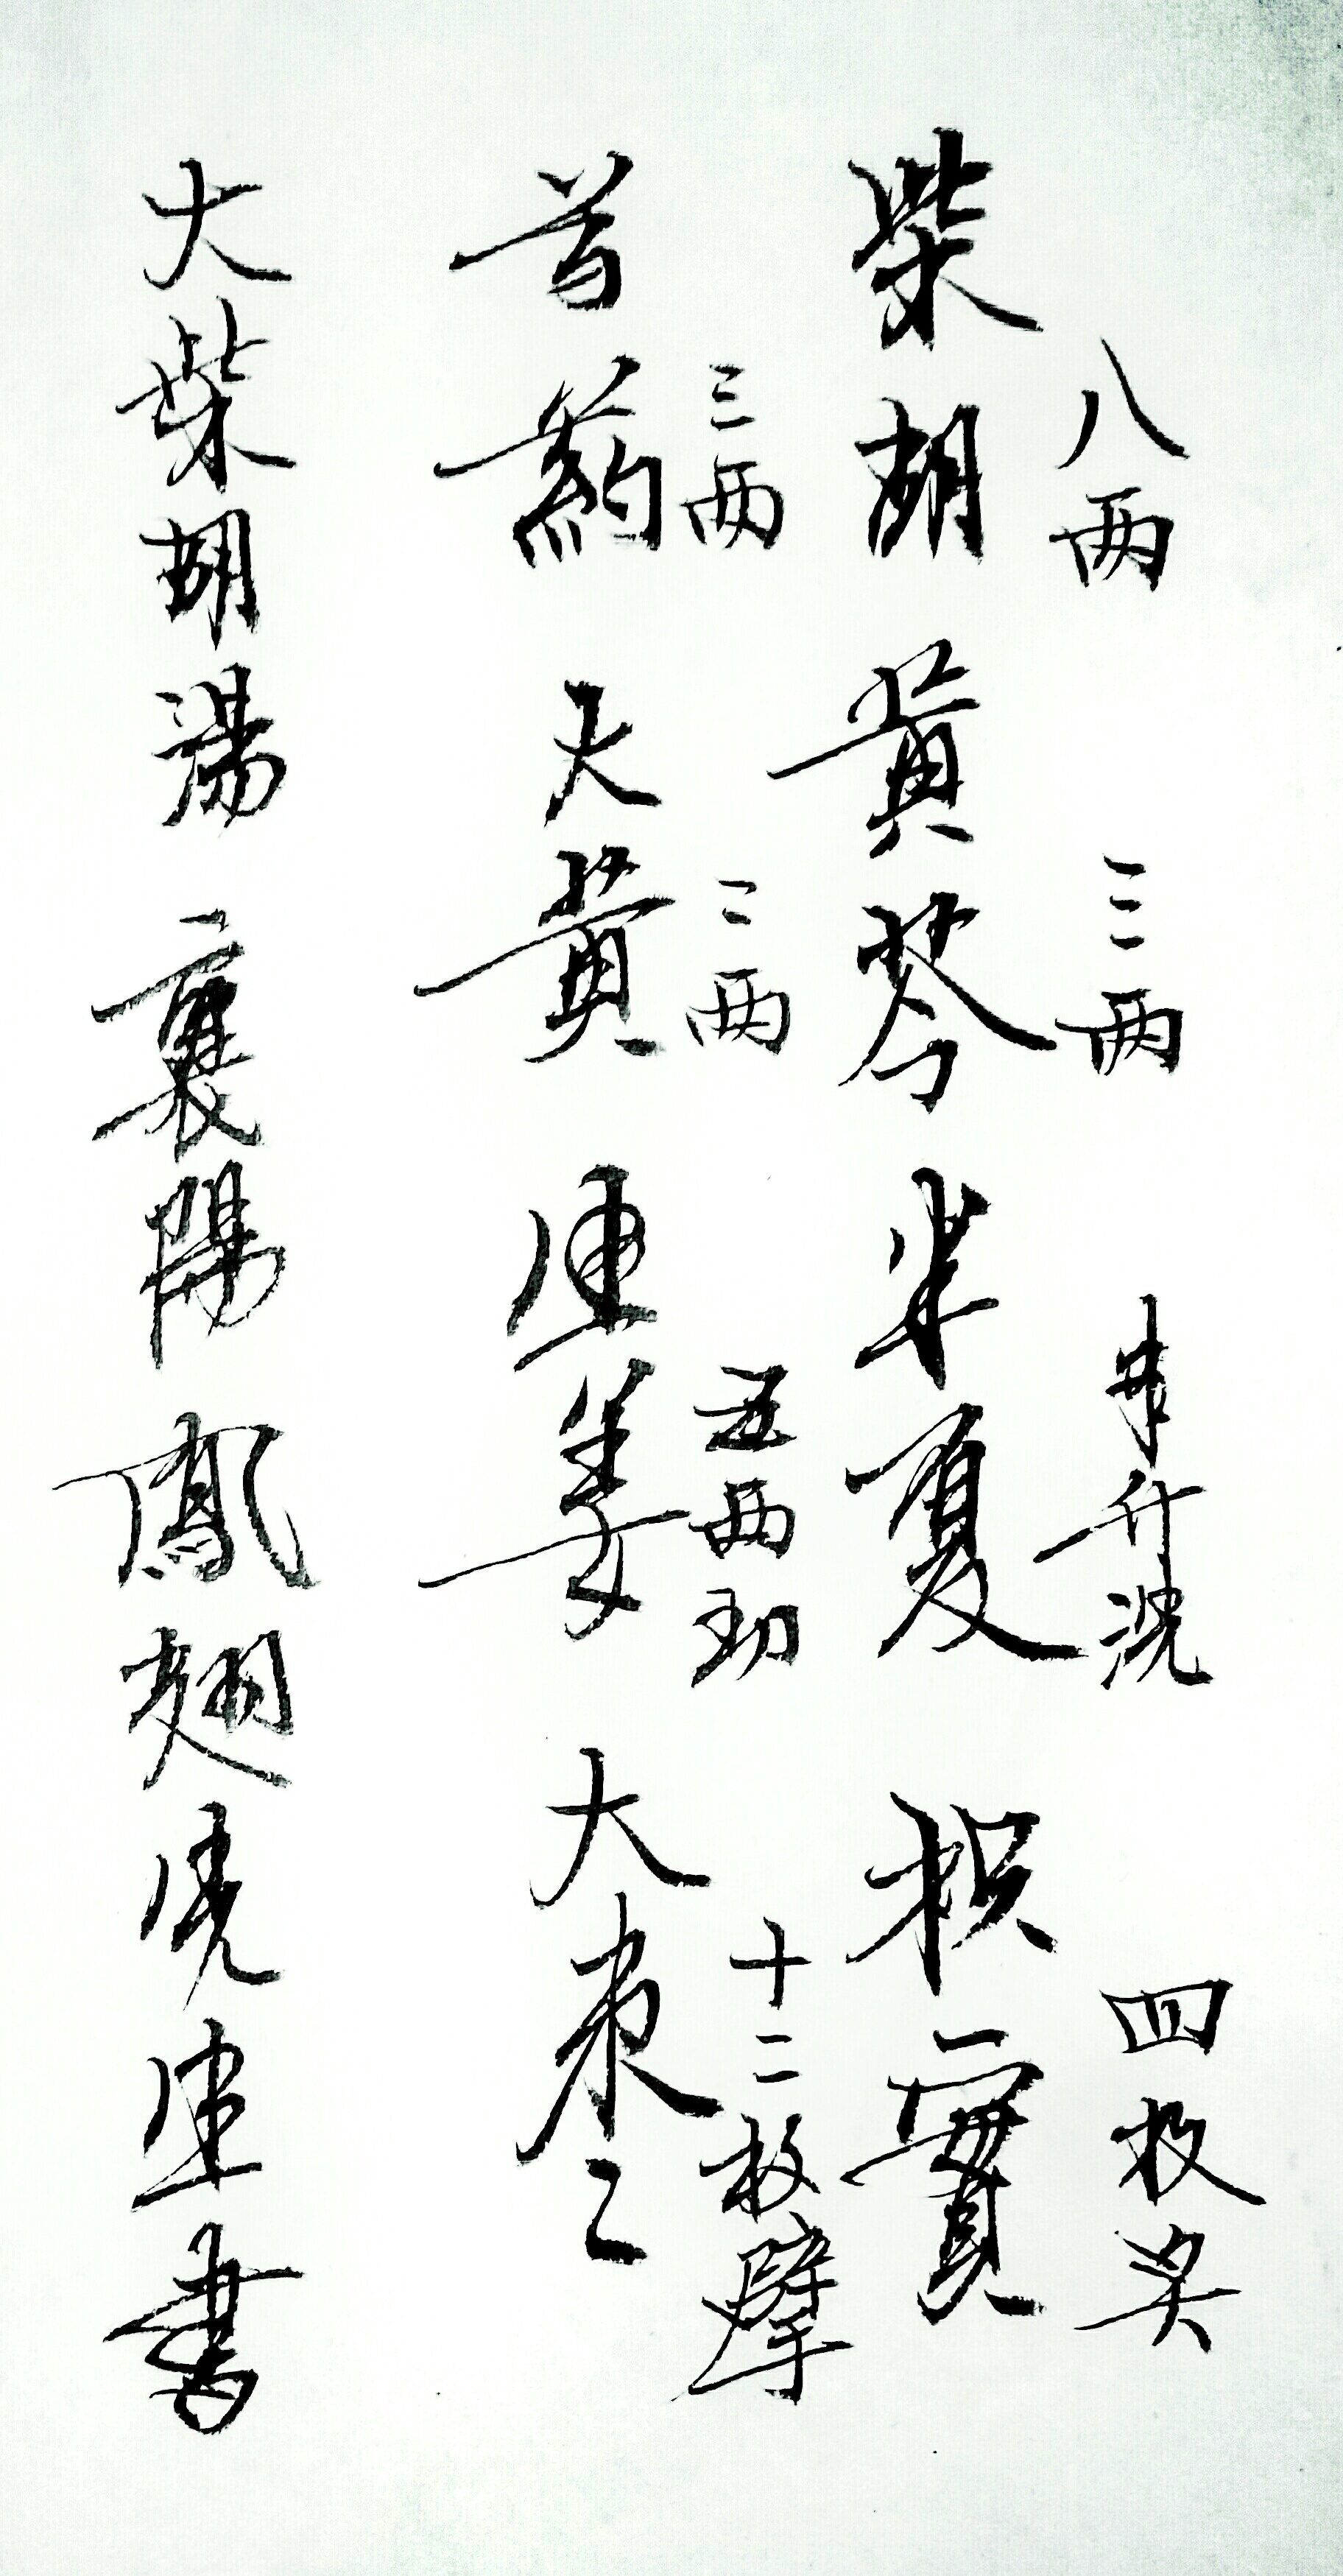 八两 三两 半升洗 四枚炙
柴胡 黄芩 半夏 枳實
三两 二两 五两切 十二枚擘
芍葯 大黄 生姜 大枣
大柴胡湯 襄陽 鳳翅先生書